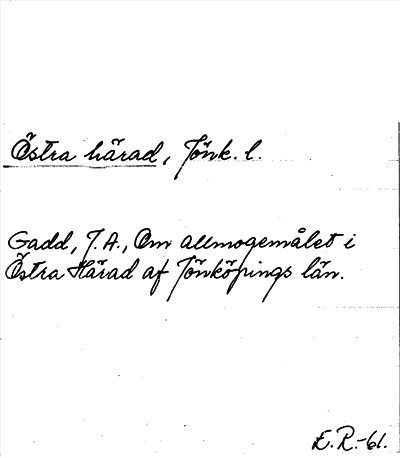 Östra härad, Jönk. l.
Gadd, J. A., Om allmogemålet i
Östra Härad af Jönköpings län.
E. R.-61.